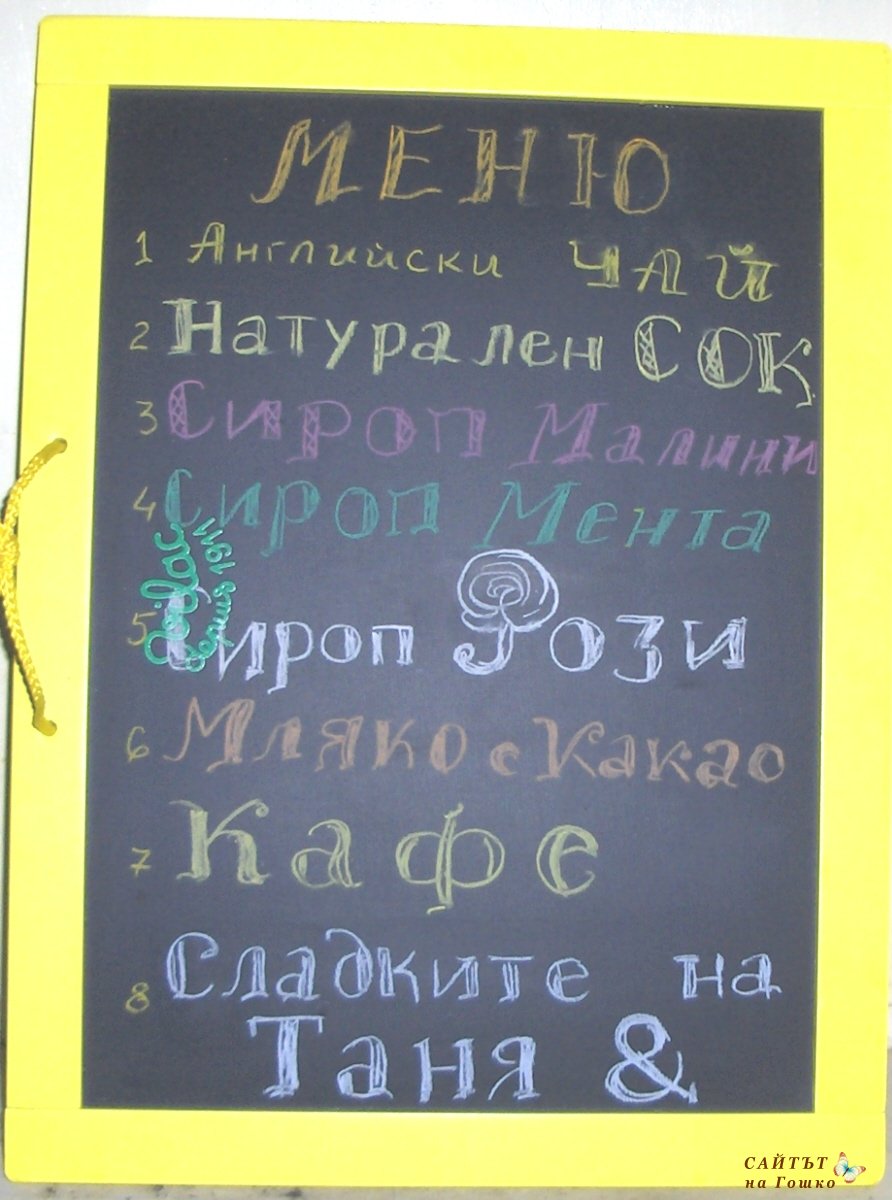 МЕНЮ
1 Английски ЧАЙ
2 Натурален СОК
3 Сироп Малини
4 Сироп Мента
5 Сироп Рози
6 Мляко с Какао
7 Кафе
8 Сладките на
Таня &
серия 1911
САЙТЪТ
на Гошко